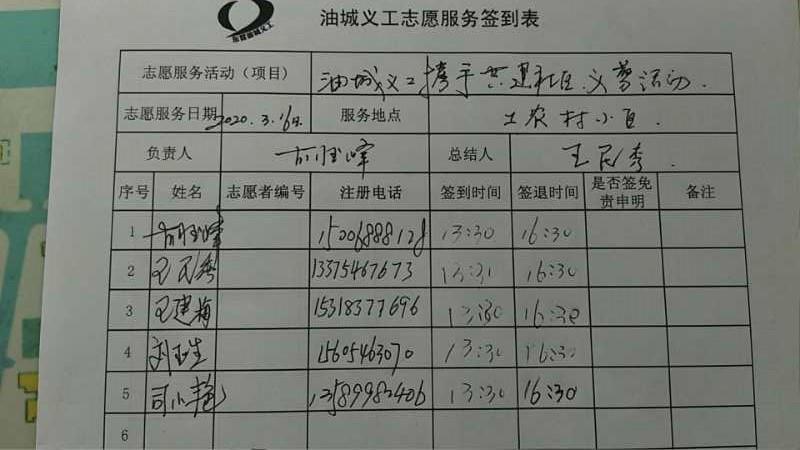 东营油城义工
油城义工志愿服务签到表
志愿服务活动（项目） 油城义工携手共建社区义剪活动.
志愿服务日期 2020.3.16日. 服务地点 工农村小区.
负责人 总结人 王民秀.
序号 姓名 志愿者编号 注册电话 签到时间 签退时间 是否签免责申明 备注
1 15206888128 13:30 16:30
2 王民秀 13375467673 13:31 16:30
3 王建梅 15318377696 13:30 16:30
4 刘玉生 15605463070 13:30 16:30
5 司小艳 13589982406 13:30 16:30
6